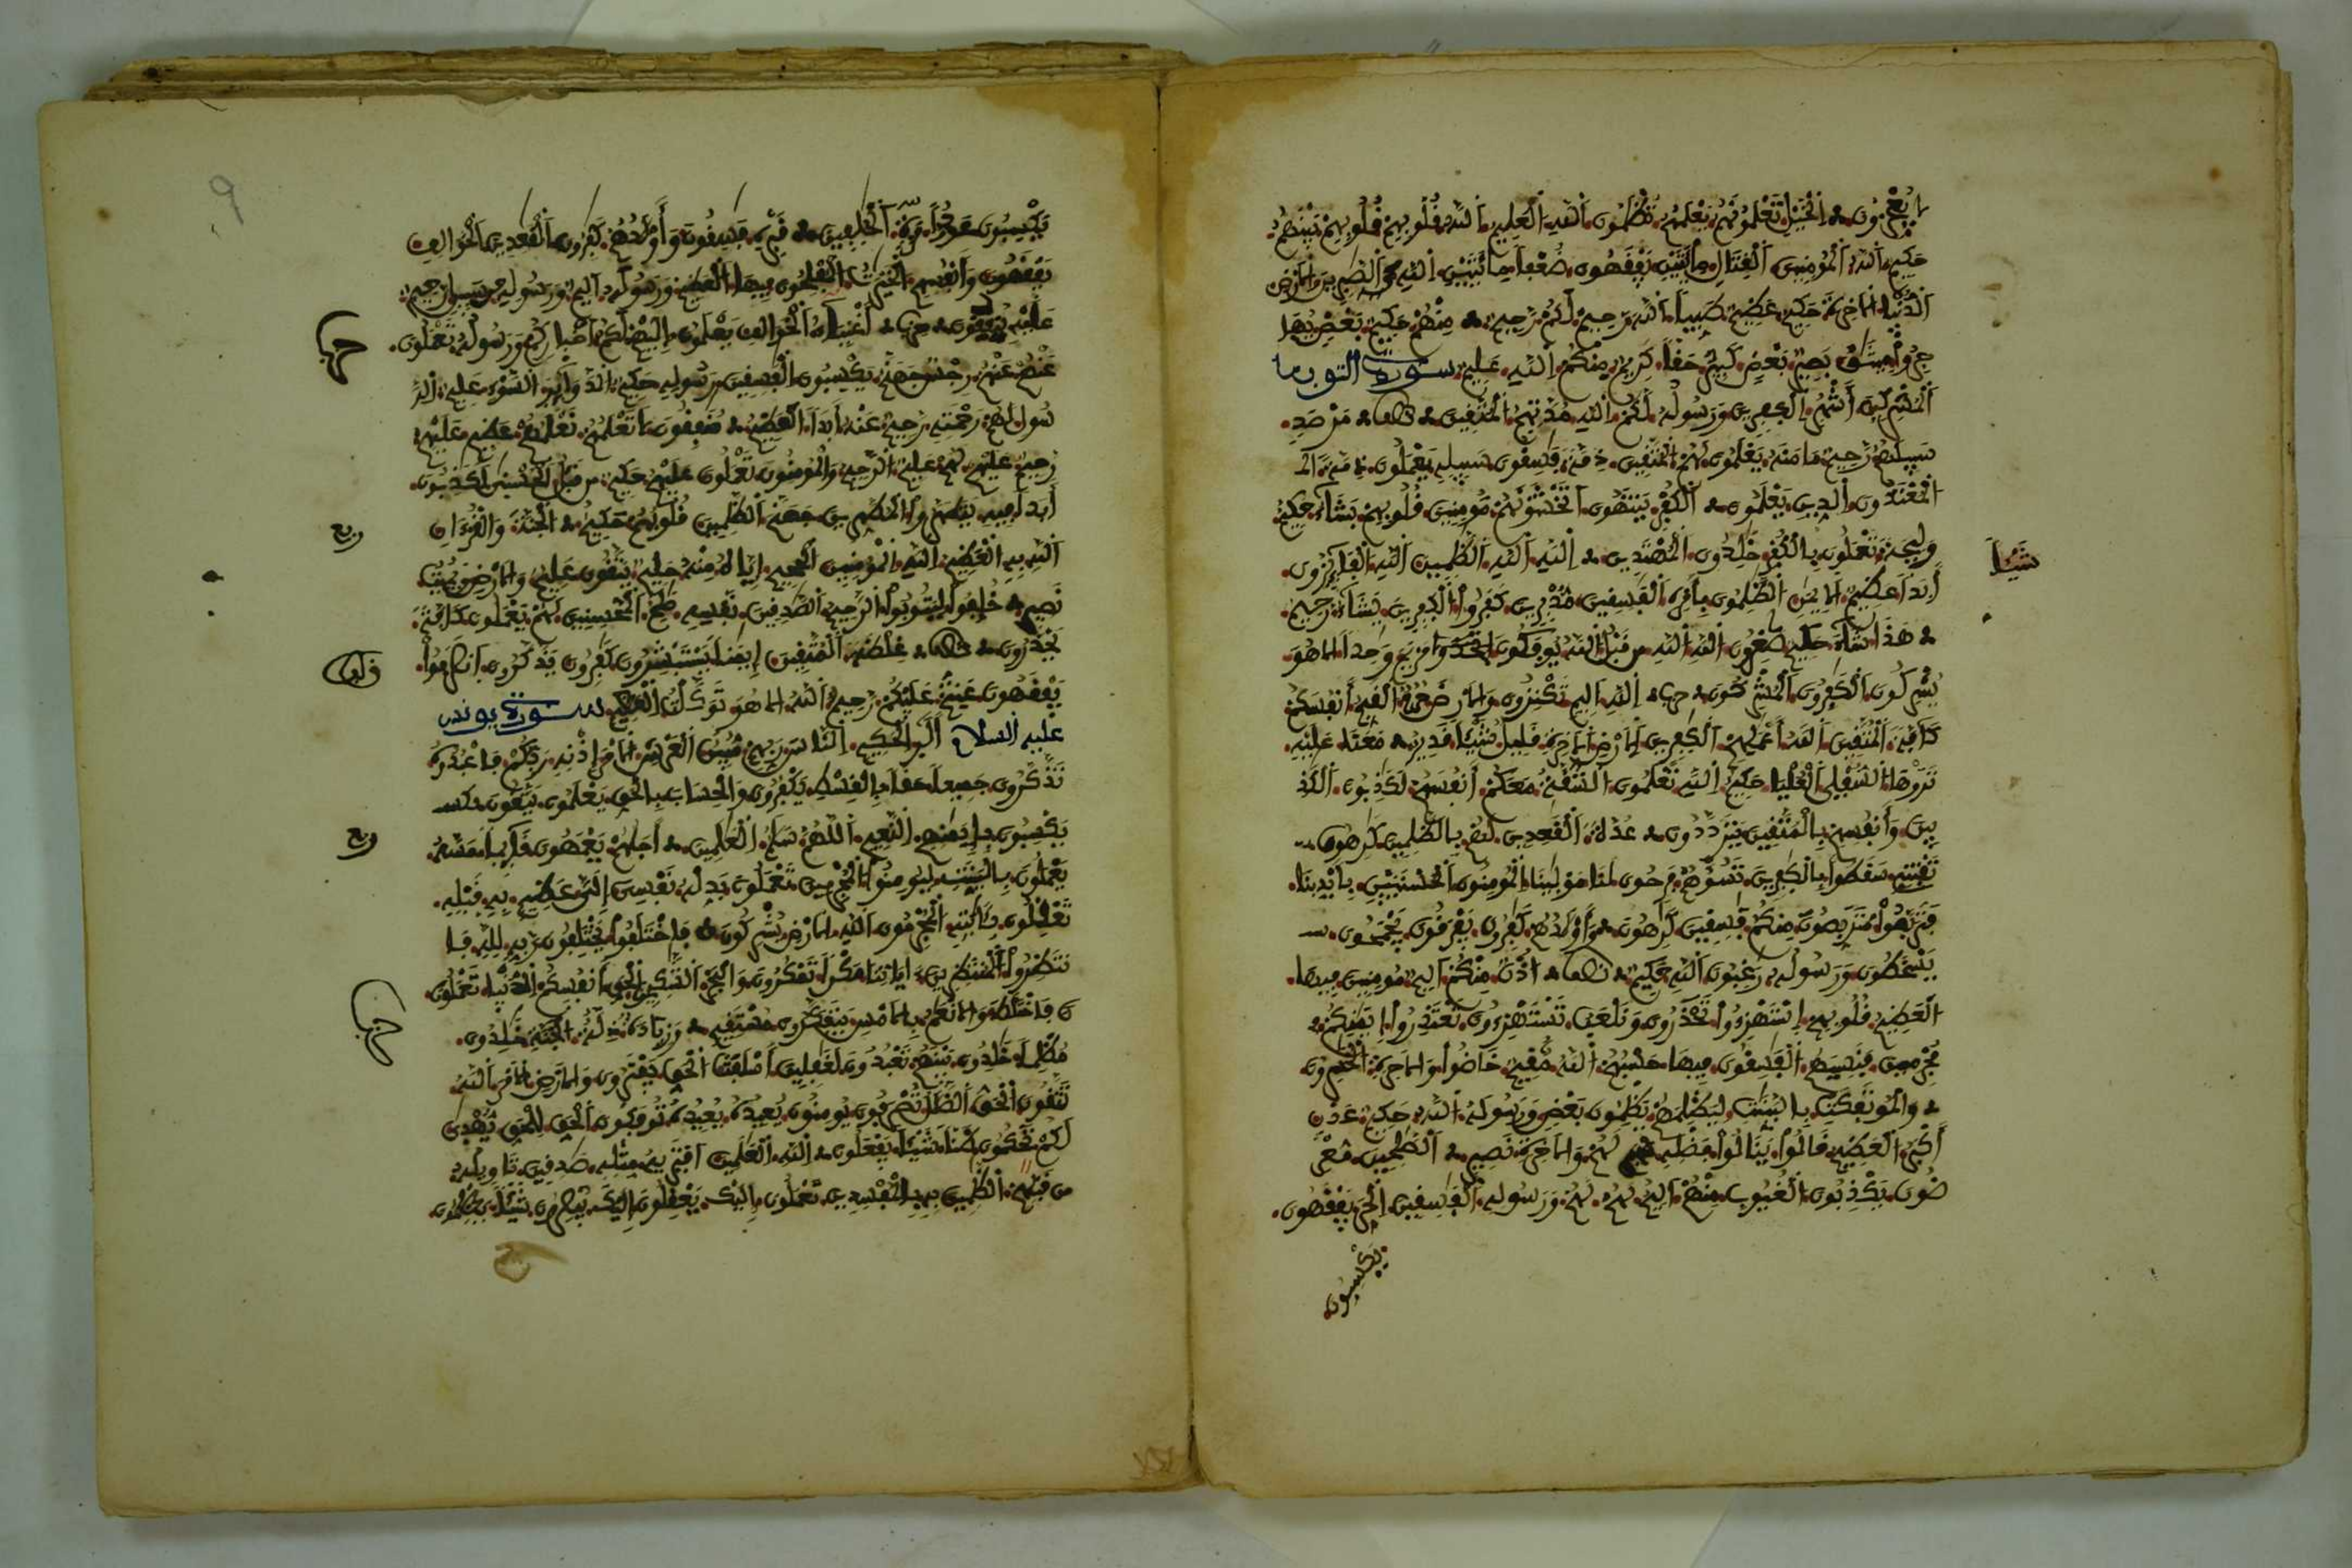 يعجزون الخيل تعلمونهم يعلمهم تظلمون الله العليم الله قلوبهم قلوبهم بينهم
حكيم الله المؤمنين القتال مائتين يفقهون ضعفا مائتين الله الصبرين الأرض
الدنيا الأخرة حكيم عظيم طيبا الله رحيم لكم رحيم منهم حكيم بعض يهاجروا
ميثق بصير بعض كبير حقا كريم منكم الله عليم سورة التوبة
المشركين أشهر الكفرين ورسوله لكم الله مدتهم المتقين مرصد
سبيلهم رحيم مأمنه يعلمون لهم المتقين ذمة فسقون سبيله يعملون ذمة
المعتدون الدين يعلمون الكفر ينتهون أتخشونهم مؤمنين قلوبهم يشاء حكيم
وليجة تعملون بالكفر خلدون المهتدين الله الله الظلمين الله الفائزون
شيئا
أبدا عظيم الإيمن الظلمون بأمره الفسقين مدبرين كفروا الكفرين يشاء رحيم
هذا شاء حكيم صغرون الله الله من قبل الله يؤفكون مريم وحدا إلا هو
يشركون الكفرون المشركون الله أليم تكنزون والأرض حرم القيم أنفسكم
كافة المتقين الله أعملهم الكفرين الأرض الأخرة قليل شيئا قدير معنا عليه
تروها السفلى العليا حكيم الله تعلمون الشقة معكم أنفسهم لكذبون الكذ
بين وأنفسهم بالمتقين يترددون عدة القعدين لهم بالظلمين كرهون
تفتني سقطوا بالكفرين تسؤهم فرحون لنا مولينا المؤمنون الحسنيين بأيدينا
فتربصوا متربصون منكم فسقين كرهون وأولدهم كفرون يفرقون يجمحون
يسخطون ورسوله رغبون الله حكيم أذن منكم أليم مؤمنين فيها
العظيم قلوبهم استهزءوا تحذرون ونلعب تستهزءون تعتذروا إيمنكم
مجرمين فنسيهم الفسقون فيها حسبهم الله مقيم خاضوا والأخرة الخسرون
والمؤتفكت بالبينت ليظلمهم يظلمون بعض ورسوله الله حكيم عدن
أكبر العظيم قالوا ينالوا فضله لهم والأخرة نصير الصلحين معر
ضون يكذبون الغيوب منهم أليم لهم لهم ورسوله الفسقين الحر يفقهون
يكسبون
9
يكسبون عدوا مرة الخلفين قبره فسقون وأولدهم كفرون القعدين الخوالف
يفقهون وأنفسهم الخيرت المفلحون فيها العظيم ورسوله أليم ورسوله من سبيل رحيم
عليه ينفقون أغنياء الخوالف يعلمون إليهم لكم أخباركم ورسوله تعملون
عنهم عنهم رجس جهنم يكسبون الفسقين رسوله حكيم الدوائر السوء عليم الر
سول لهم رحمته رحيم عنه أبدا العظيم منفقون تعلمهم نعلمهم عظيم عليهم
رحيم عليهم لهم عليم الرحيم والمؤمنون تعملون عليهم حكيم من قبل الحسنى لكذبون
ربع
أبدا فيه يتطهروا المطهرين جهنم الظلمين قلوبهم حكيم الجنة والقرءان
الله به العظيم الله المؤمنين الجحيم إياه منه حليم يتقون عليم والأرض ويميت
نصير خلفوا ليتوبوا الرحيم الصدقين نفسه صلح المحسنين لهم يعملون كافة
يحذرون غلظة المتقين إيمنا يستبشرون كفرون يذكرون انصرفوا
يفقهون عنتم عليكم رحيم الله إلا هو توكلت العظيم سورة يونس
عليه السلام الر الحكيم الناس ربهم مبين العرش الأمر إذنه ربكم فاعبدوه
تذكرون جميعا حقا بالقسط يكفرون والحساب بالحق يعلمون يتقون
ربع
يكسبون بإيمنهم النعيم اللهم سلم العلمين أجلهم يعمهون قائما مسه
يعملون بالبينت ليؤمنوا المجرمين تعملون بدله نفسي إلي عظيم به قبله
تعقلون بئايته المجرمون الله الأرض يشركون فاختلفوا يختلفون ربه لله فا
نتظروا المنتظرين ءاياتنا مكرا تمكرون والبحر الشكرين الحق أنفسكم الدنيا تعملون
فاختلط والأنعم بالأمس يتفكرون مستقيم وزيادة ذلة الجنة خلدون
مظلما خلدون بينهم تعبدون لغفلين أسلفت الحق يفترون والأرض الأمر الله
تتقون الحق الضلل تصرفون يؤمنون يعيده يعيده تؤفكون الحق للحق يهدى
لكم تحكمون ظنا شيئا يفعلون الله العلمين افتريه مثله صدقين تأويله
من قبلهم الظلمين به بالمفسدين تعملون إليك يعقلون إليك يبصرون شيئا يظلمون